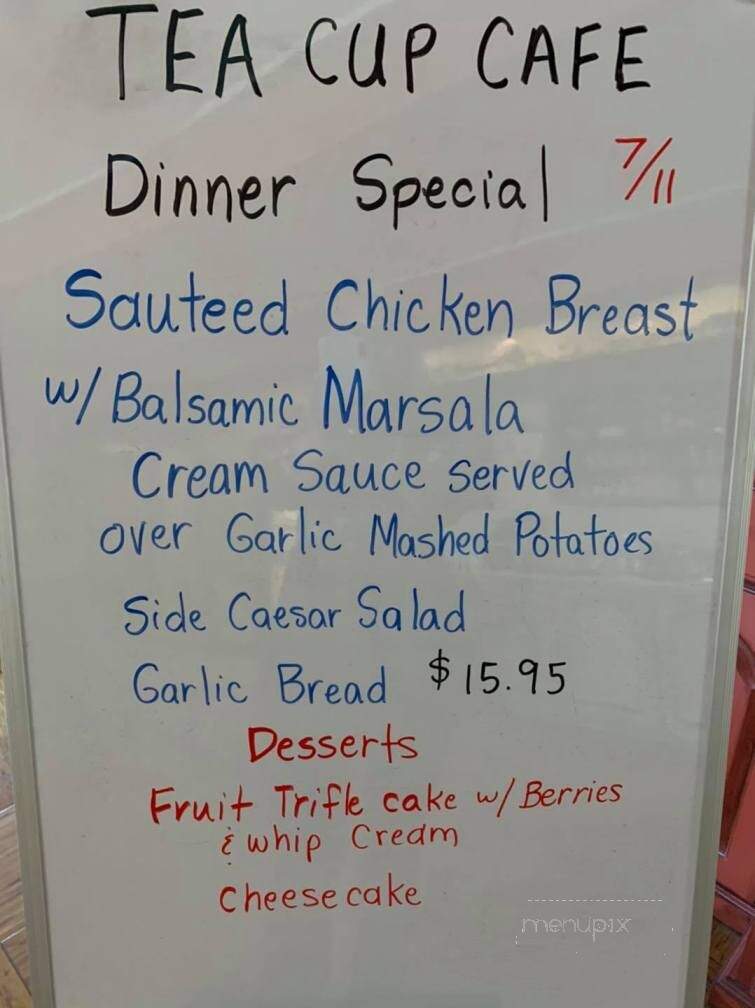 TEA CUP CAFE
Dinner Special 7/11
Sauteed Chicken Breast
w/ Balsamic Marsala
Cream Sauce served
over Garlic Mashed Potatoes
Side Caesar Salad
Garlic Bread $15.95
Desserts
Fruit Trifle cake w/ Berries
& whip Cream
cheesecake
menupix